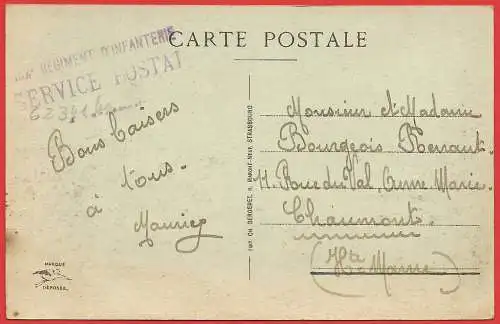 CARTE POSTALE
RÉGIMENT D'INFANTERIE
SERVICE POSTAL
Bons baisers
à
tous.
Maurice
Monsieur et Madame
Bourgeois Renaut.
11. Rue du Val, Anne Marie.
Chaumont
(Hte Marne)
IMP. CH. BERGERET, STRASBOURG
MARQUE
DÉPOSÉE